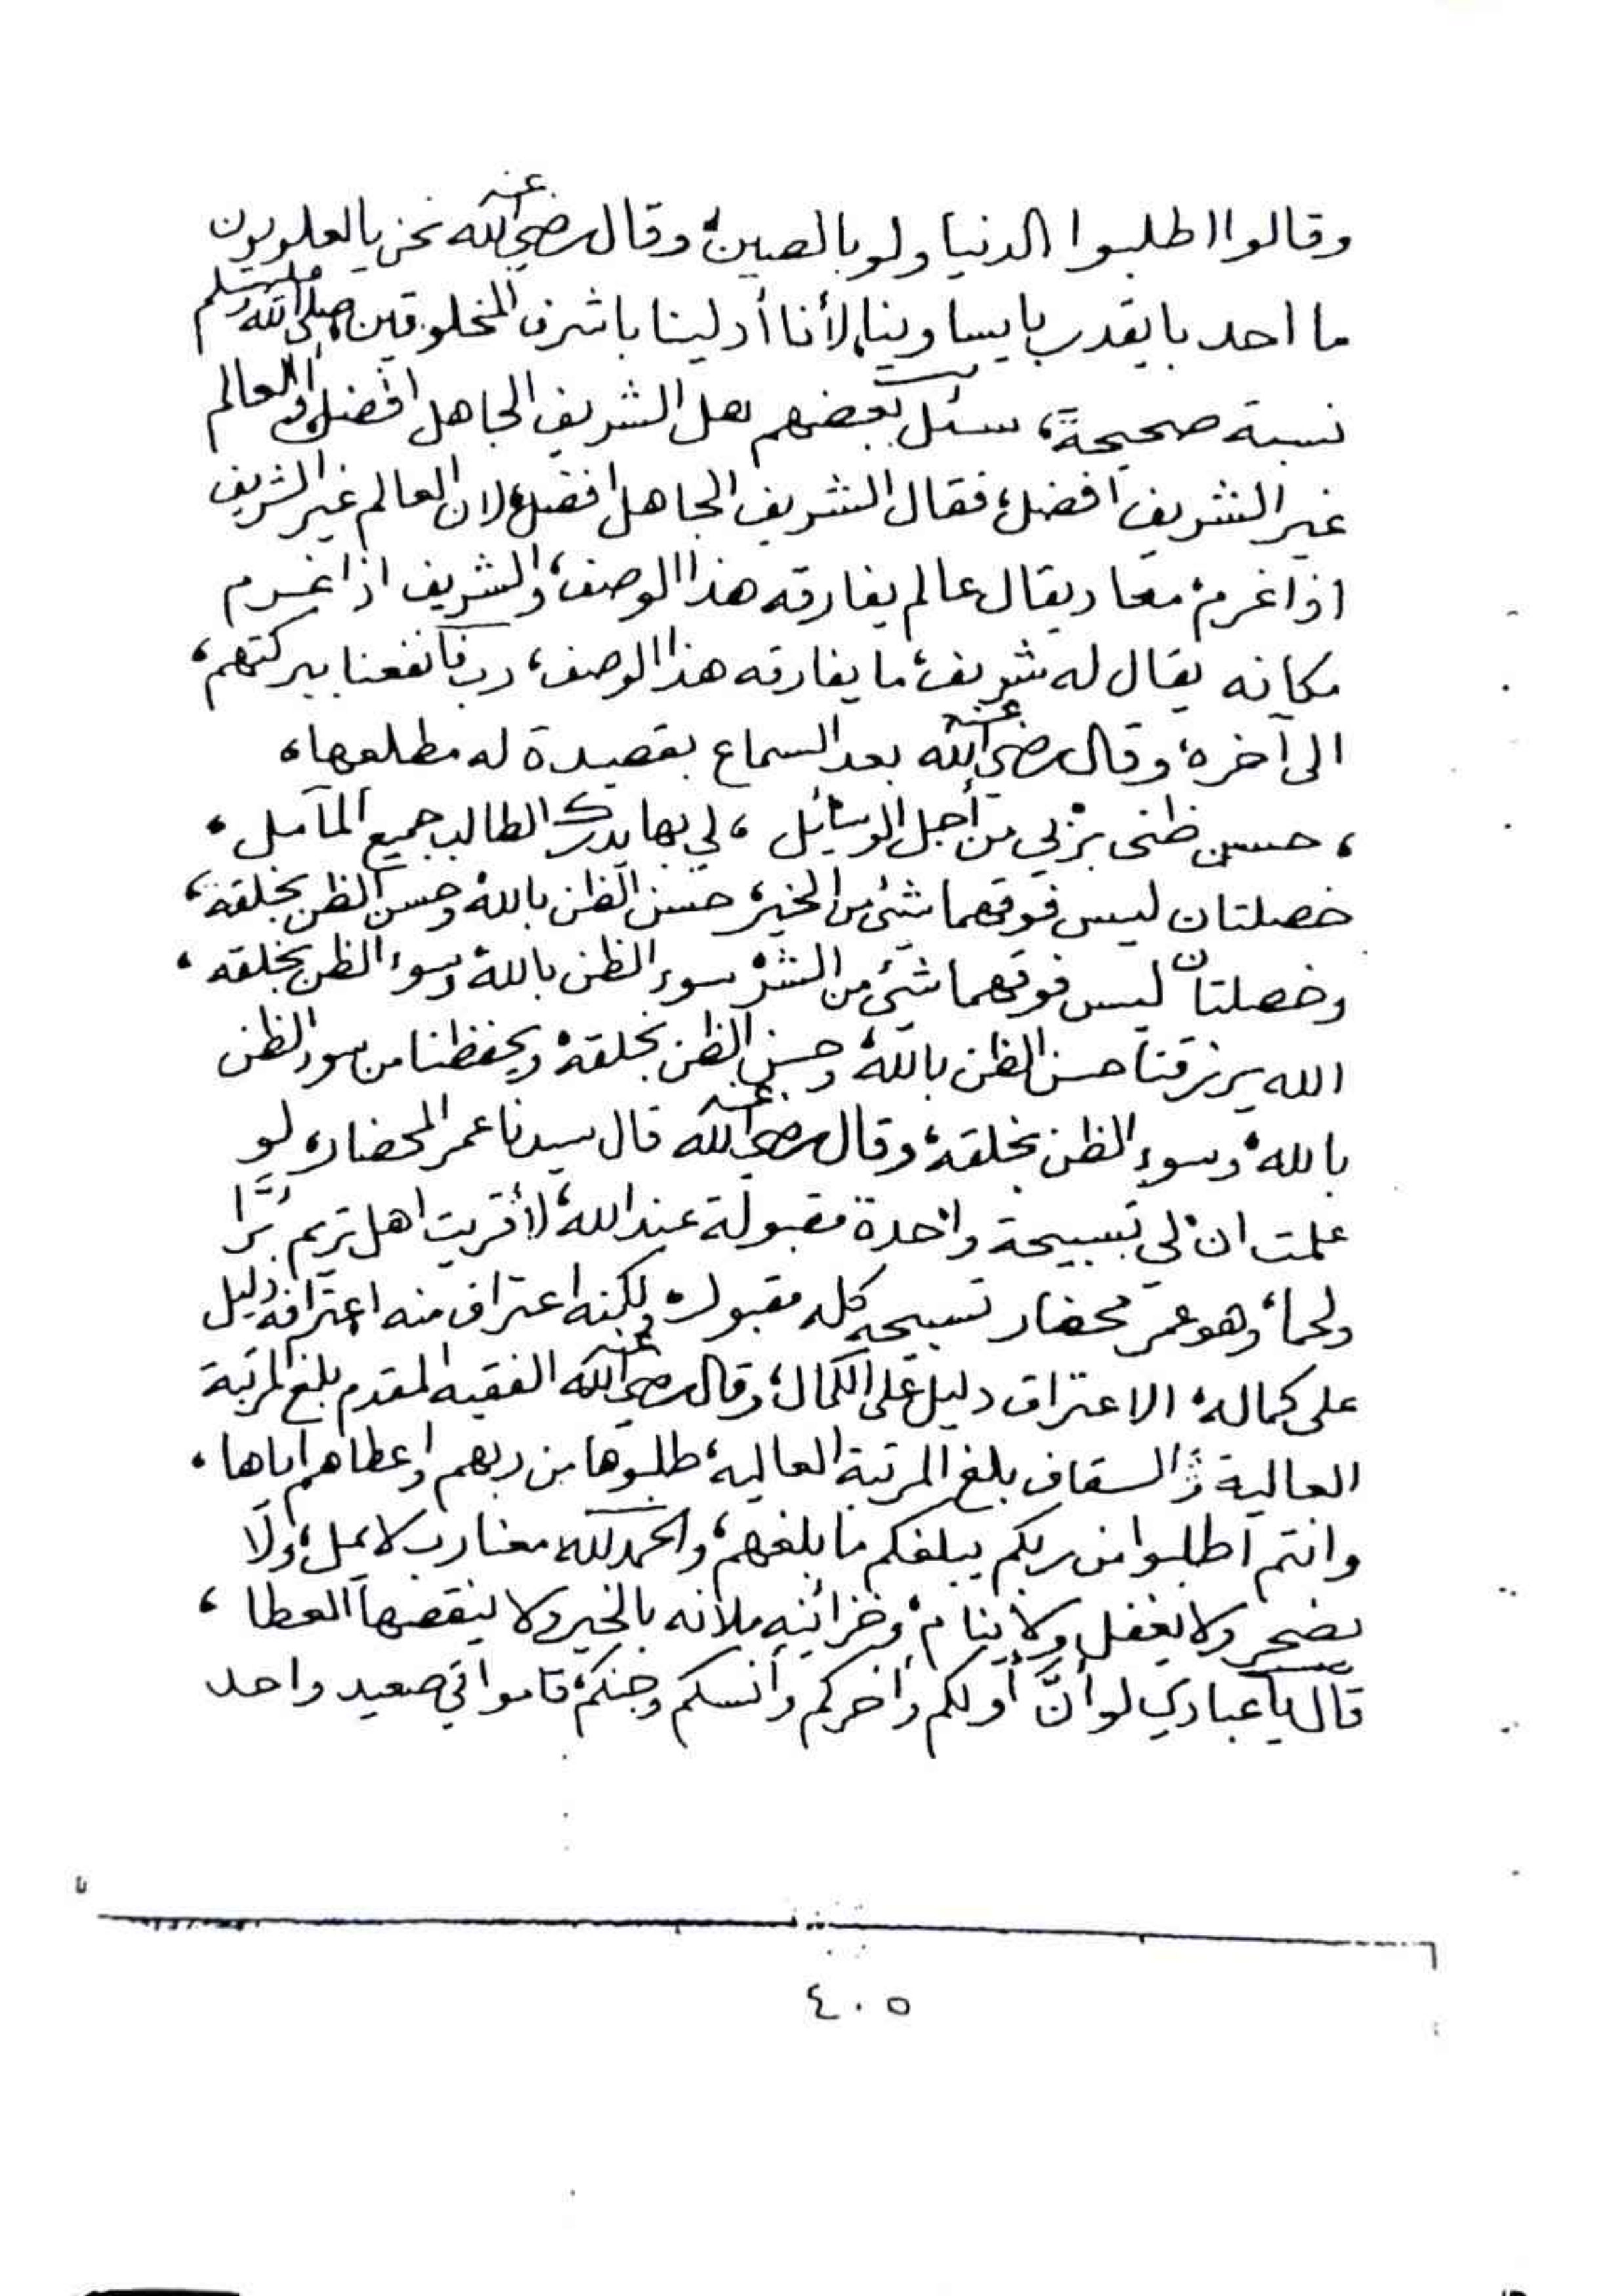 وقالوا اطلبوا الدنيا ولو بالصين، وقال رضي الله عنه نحن يالعلويون
ما احد بايقدر بايساوينا، لأنا أدلينا باشرف المخلوقين صلى الله عليه وسلم
نسبة صحيحةً، سئل بعضهم هل الشريف الجاهل افضل او العالم
غير الشريف افضل، فقال الشريف الجاهل افضل، لان العالم غير الشريف
اذا غرم معاد يقال عالم يفارقه هذا الوصف، والشريف اذا غرم
مكانه يقال له شريف، ما يفارقه هذا الوصف، ربنا نفعنا ببركتهم،
الى آخره، وقال رضي الله عنه بعد السماع بقصيدة له مطلعها،
، حسن ظنى بربي من أجل الوسائل ، لي بها يدرك الطالب جميع المآمل ،
خصلتان ليس فوقهما شئ من الخير، حسن الظن بالله، وحسن الظن بخلقه،
وخصلتان ليس فوقهما شئ من الشر، سوء الظن بالله، وسوء الظن بخلقه،
الله يرزقنا حسن الظن بالله، وحسن الظن بخلقه، ويحفظنا من سوء الظن
بالله، وسوء الظن بخلقه، وقال رضي الله عنه قال سيدنا عمر المحضار، لو
علمت ان لي تسبيحة واحدة مقبولة عند الله، لأقريت اهل تريم بُرًّا
ولحما، وهو عمر محضار تسبيحه كله مقبول، ولكنه اعتراف منه اعترافه دليل
على كماله، الاعتراف دليل على الكمال، وقال رضي الله عنه الفقيه المقدم بلغ المرتبة
العالية والسقاف بلغ المرتبة العاليه، طلبوها من ربهم واعطاهم اياها،
وانتم اطلبوا من ربكم يبلغكم ما بلغهم، والحمد لله معنا رب لا يمل، ولا
يضجر ولا يغفل ولا ينام، وخزائنه ملانه بالخير ولا ينقصها العطا ،
قال يا عبادي لو أنَّ أولكم وآخركم وأنسكم وجنكم، قاموا في صعيد واحد
٤٠٥